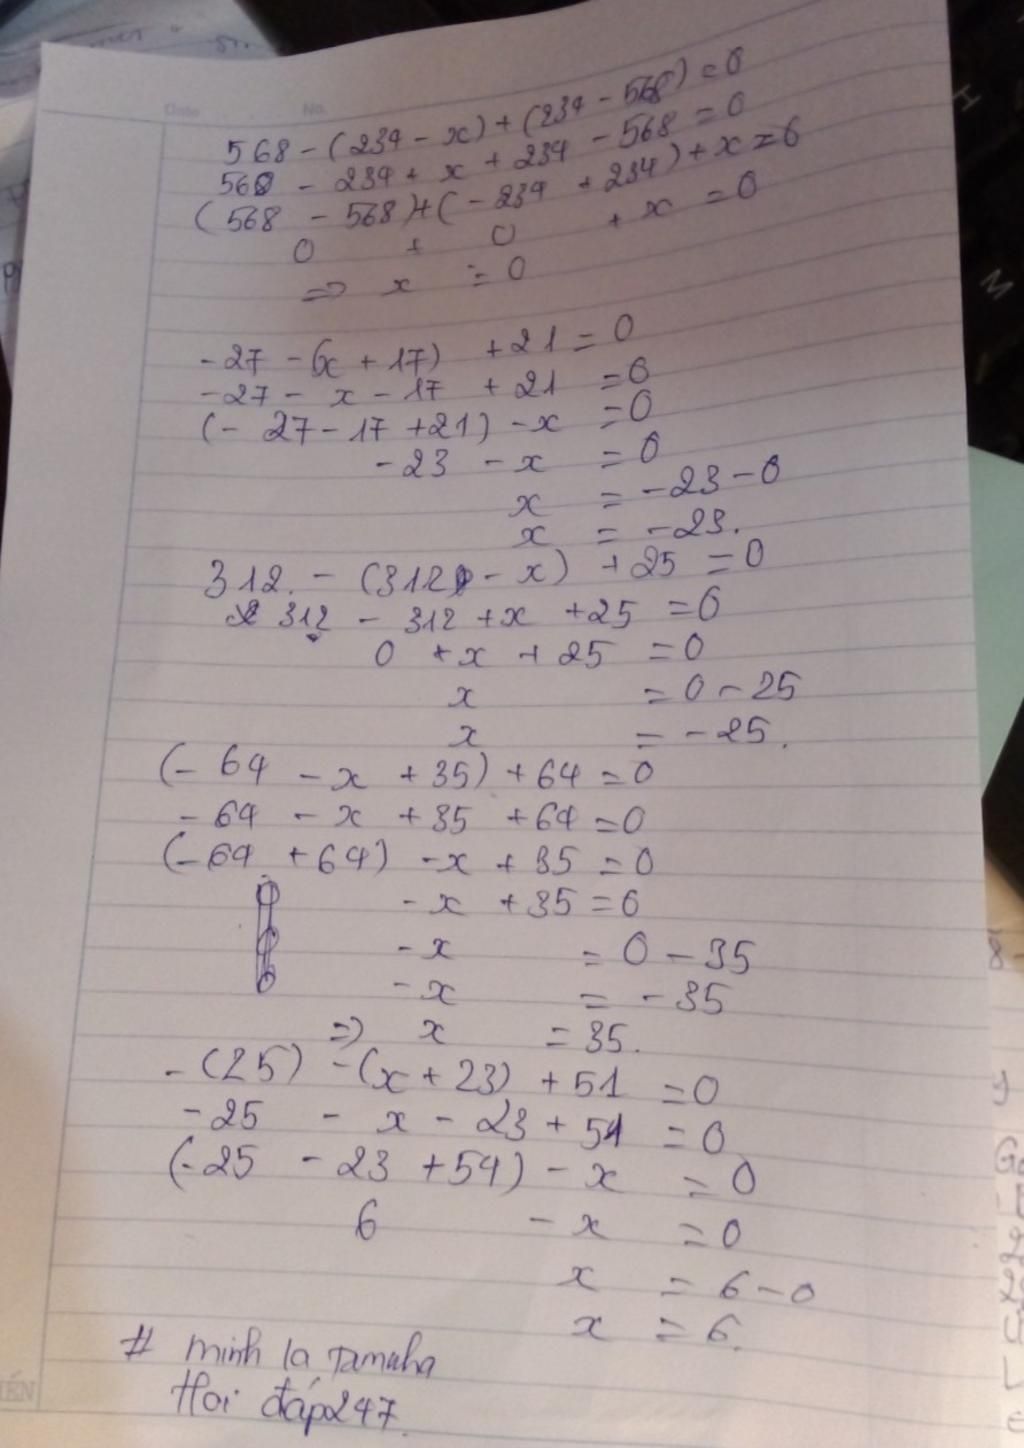 Date No.
568 - (234 - x) + (234 - 568) = 0
568 - 234 + x + 234 - 568 = 0
(568 - 568) + (-234 + 234) + x = 0
0 + 0 + x = 0
=> x = 0
-27 - (x + 17) + 21 = 0
-27 - x - 17 + 21 = 0
(-27 - 17 + 21) - x = 0
-23 - x = 0
x = -23 - 0
x = -23.
312. - (312 - x) + 25 = 0
312 - 312 + x + 25 = 0
0 + x + 25 = 0
x = 0 - 25
x = -25.
(-64 - x + 35) + 64 = 0
-64 - x + 35 + 64 = 0
(-64 + 64) - x + 35 = 0
-x + 35 = 0
-x = 0 - 35
-x = -35
=> x = 35.
-(25) - (x + 23) + 51 = 0
-25 - x - 23 + 54 = 0
(-25 - 23 + 54) - x = 0
6 - x = 0
x = 6 - 0
x = 6.
# minh la Tamuha
Hoi đáp247.